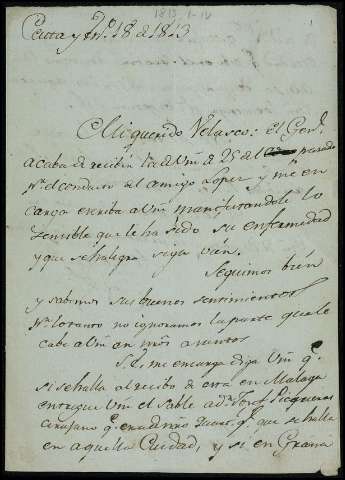 1813-I-18
Ceuta y En.º 18 de 1813
Mi querido Velasco: el Gen.l
acaba de recibir la de Vm de 25 del pasado
p.r el conducto del amigo Lopez y me en
carga escriba a Vm manifestandole lo
sensible que le ha sido su enfermedad
y que se halegra siga bien.
Seguimos bien
y sabemos sus buenos sentimientos
p.r lo tanto no ignoramos la parte que le
cabe a Vm en nros asuntos
S.E. me encarga diga Vm q.e
si se halla al recibo de esta en Malaga
entregue Vm el sable a d.n Josef
cirujano q.e que se halla
en aquella Ciudad, y si en Grana